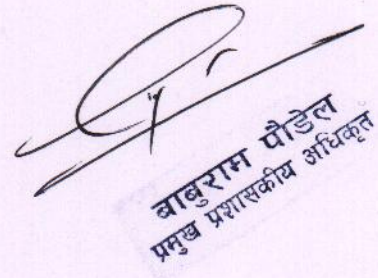 बाबुराम पौडेल
प्रमुख प्रशासकीय अधिकृत